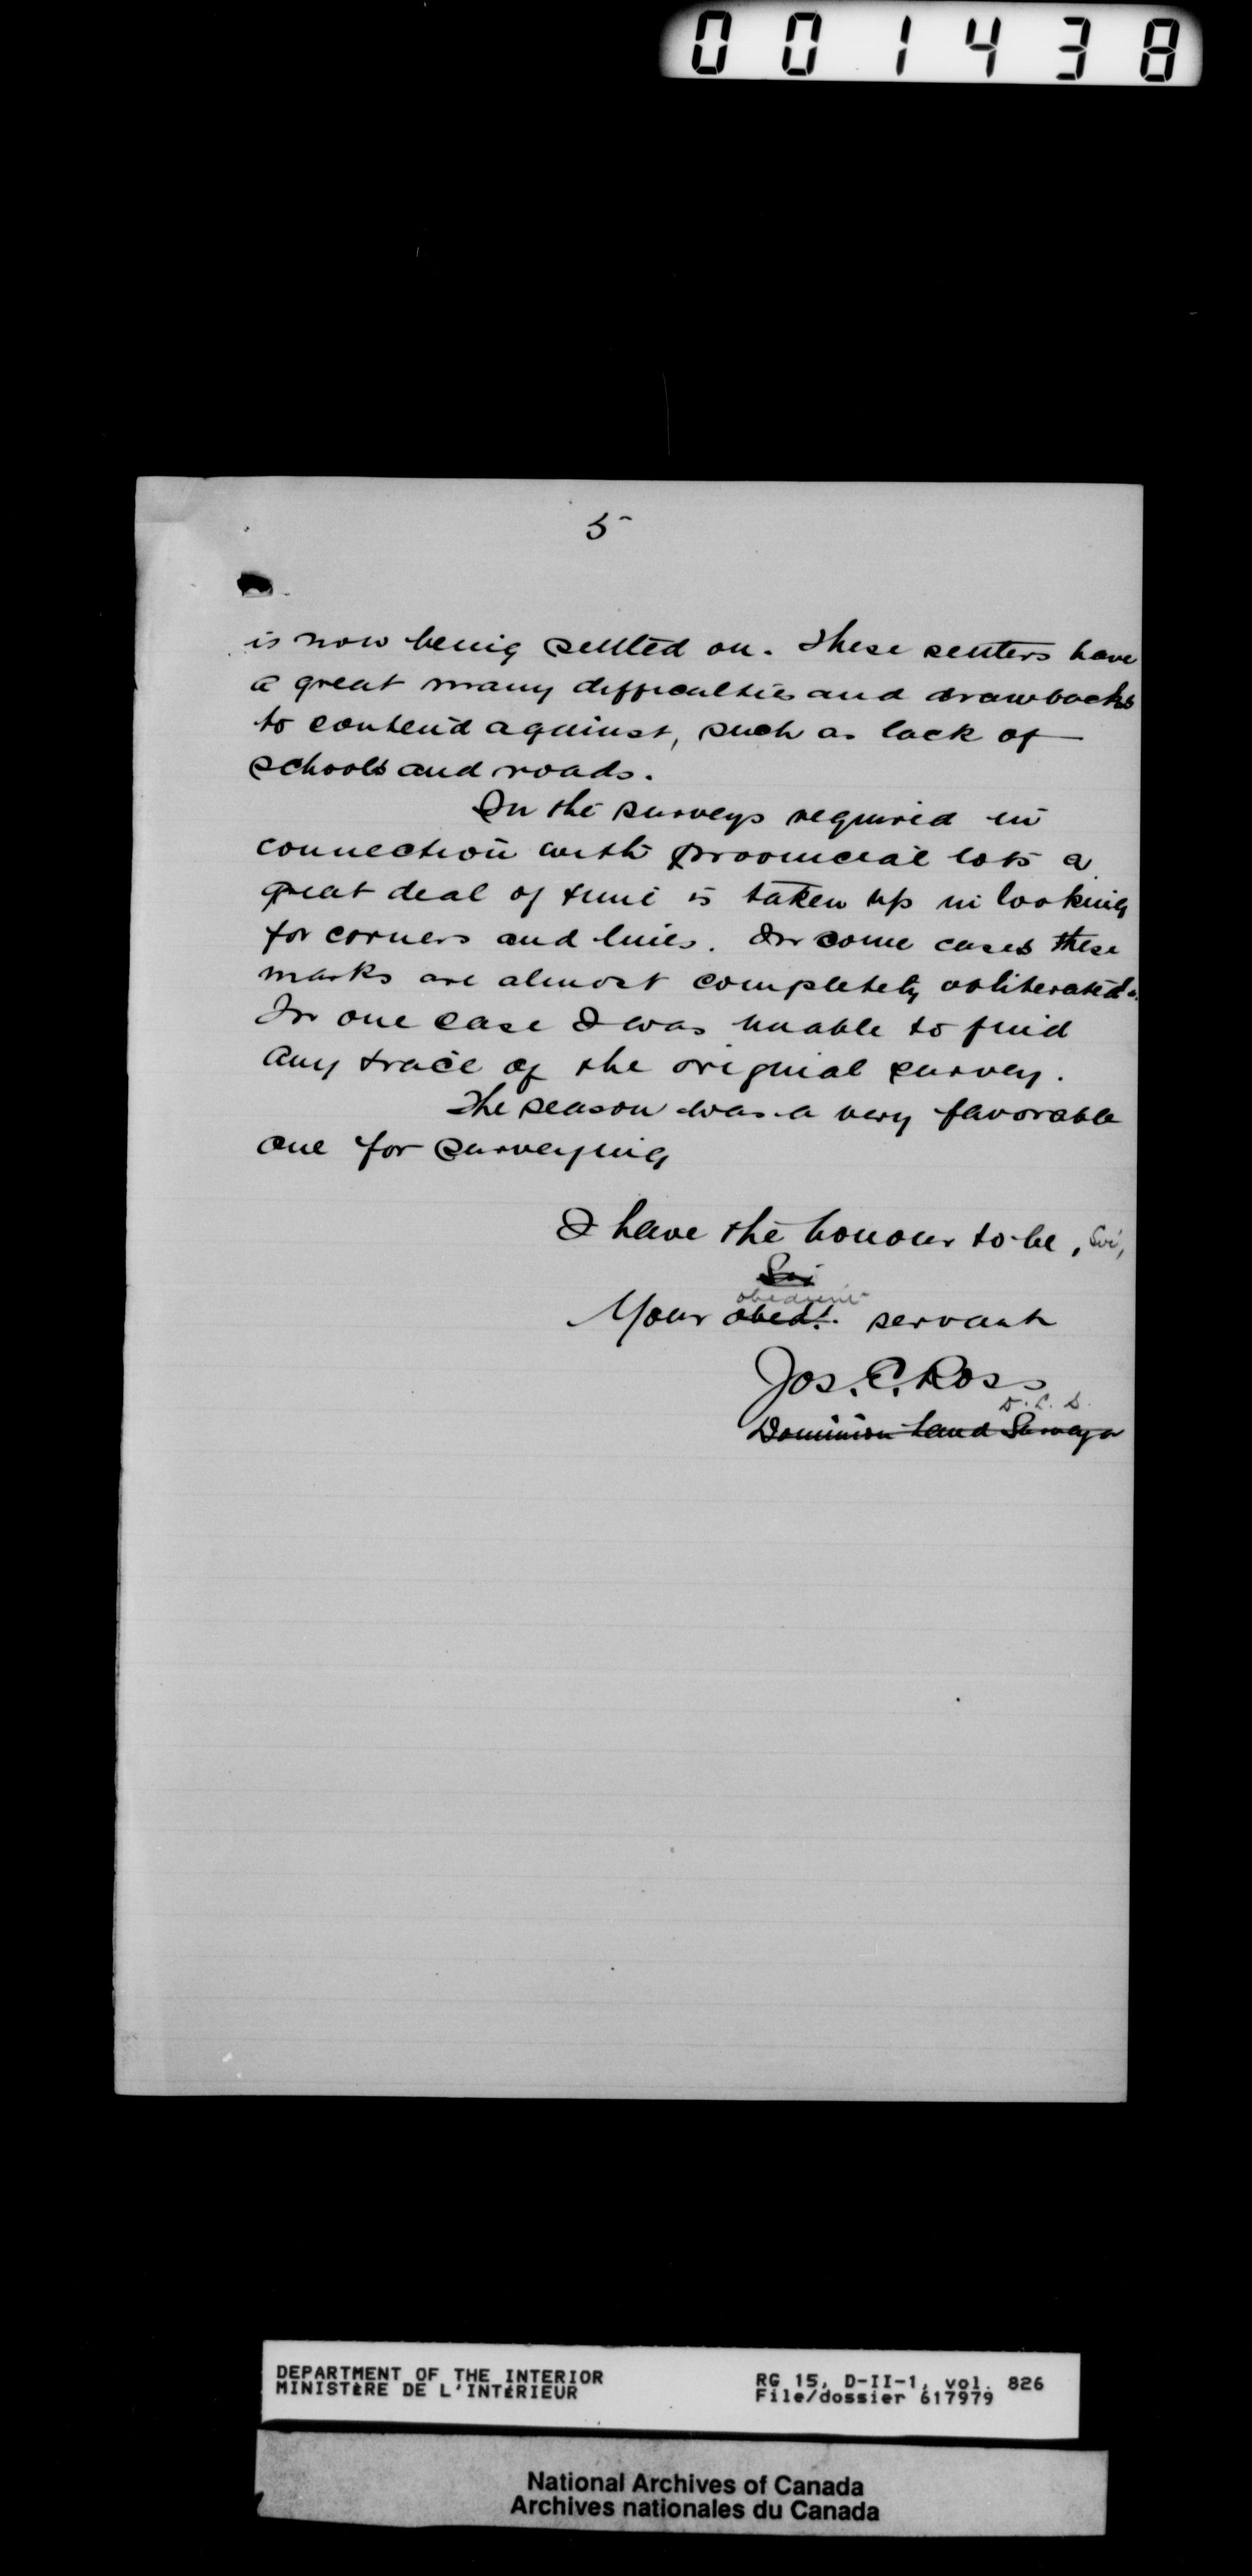 001438
5
is now being settled on. These settlers have
a great many difficulties and drawbacks
to contend against, such as lack of
schools and roads.
In the surveys required in
connection with provincial lots a
great deal of time is taken up in looking
for corners and lines. In some cases these
marks are almost completely obliterated.
In one case I was unable to find
any trace of the original survey.
The season was a very favorable
one for surveying
I have the honour to be, Sir,
Sir
obedient
Your obedt. servant
Jos. E. Ross
D. L. S.
Dominion Land Surveyor
DEPARTMENT OF THE INTERIOR
MINISTÈRE DE L'INTÉRIEUR
RG 15, D-II-1, vol. 826
File/dossier 617979
National Archives of Canada
Archives nationales du Canada